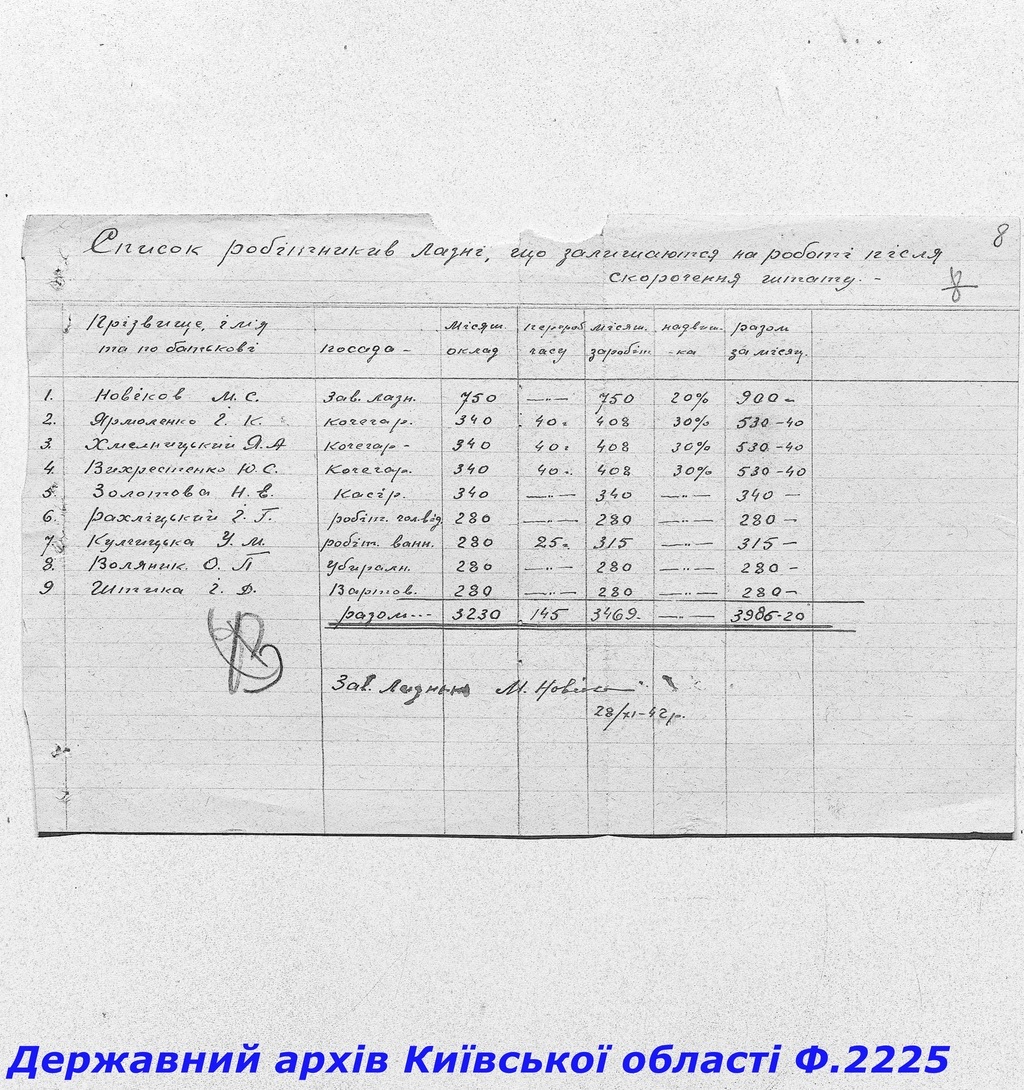 8
Список робітникив лазні, що залишаются на роботі після
скорочення штату. -
8
Прізвище, імя та по батькові посада - місячн. оклад перероб часу місячн. заробіт надвиш-ка разом за місяц.
1. Новіков М. С. Зав. лазн. 750 —"— 750 20% 900 -
2. Ярмоленко І. К. кочегар. 340 40. 408 30% 530-40
3. Хмельницький Я. А кочегар - 340 40. 408 30% 530-40
4. Вихрестенко Ю. С. Кочегар. 340 40. 408 30% 530-40
5. Золотова Н. В. Касір. 340 —"— 340 340 -
6. Рахліцький І. Г. робіт. чол. від. 280 —"— 280 —"— 280 -
7. Кулчицька У. М. робіт. ванн. 280 25. 315 —"— 315 -
8. Воляник О. П Убиральн. 280 —"— 280 —"— 280 -
9 Штика І. Д. Вартов. 280 —"— 280 —"— 280 -
разом --- 3230 145 3469. —"— 3986-20
Зав. Лазнью М. Новіков
28/XI-42р.
Державний архів Київської області Ф.2225